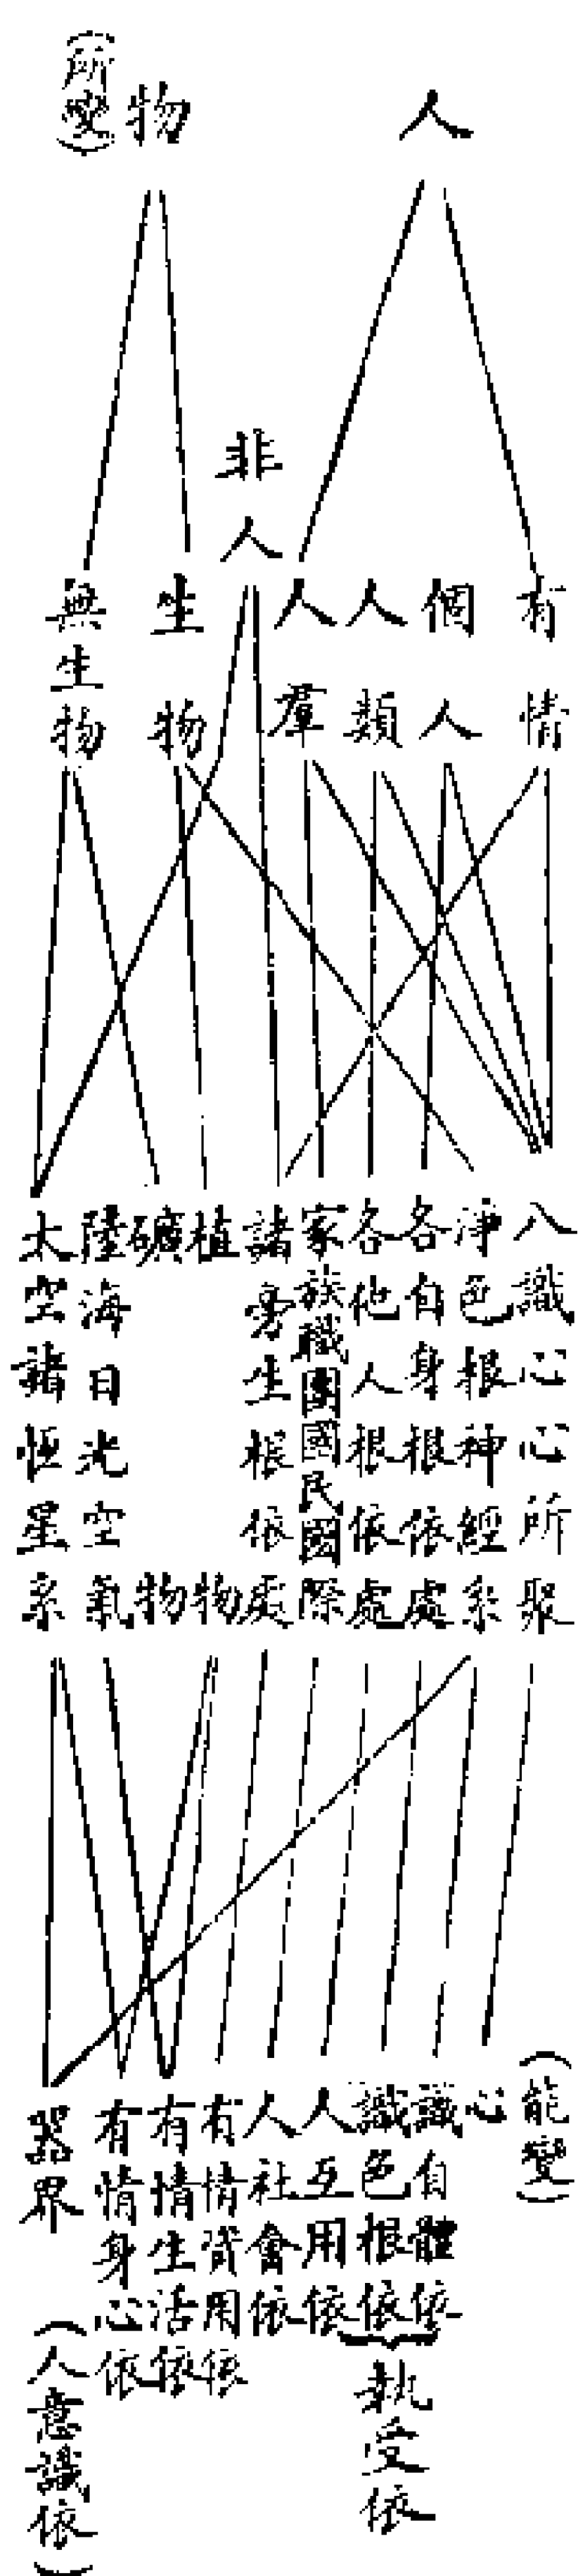 人
物
（所變）
有情
個人
人類
人羣
非人
生物
無生物
八識心心所聚
淨色根神經系
各自身根依處
各他人根依處
家族職團國民國際
諸旁生根依處
植物
礦物
陸海日光空氣
太空諸恒星系
（能變）
心
識自體依
識色根依
執受依
人互用依
人社會依
有情資用依
有情生活依
有情身心依
器界
（人意識依）